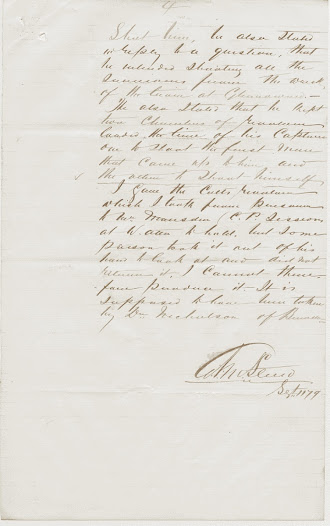 of
Shot him, he also stated
in reply to a question, that
he intended shooting all the
survivors from the wreck
of the train at Glenrowan—
He also stated that he kept
two Chambers of Revolver
loaded the time of his Capture
one to shoot the first man
that Came up to him and
the other to shoot himself
I gave the Colts Revolver
which I took from prisoner
to Mr C.P. Sessions
at to hold but some
person took it out of his
hand to look at and did not
return it. I Cannot there-
fore produce it. It is
supposed to have been taken
by Dr Nicholson of
Sergt